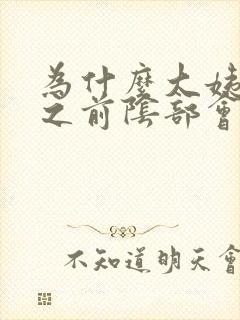 為什麼大姨
之前陰部會
不知道明天會